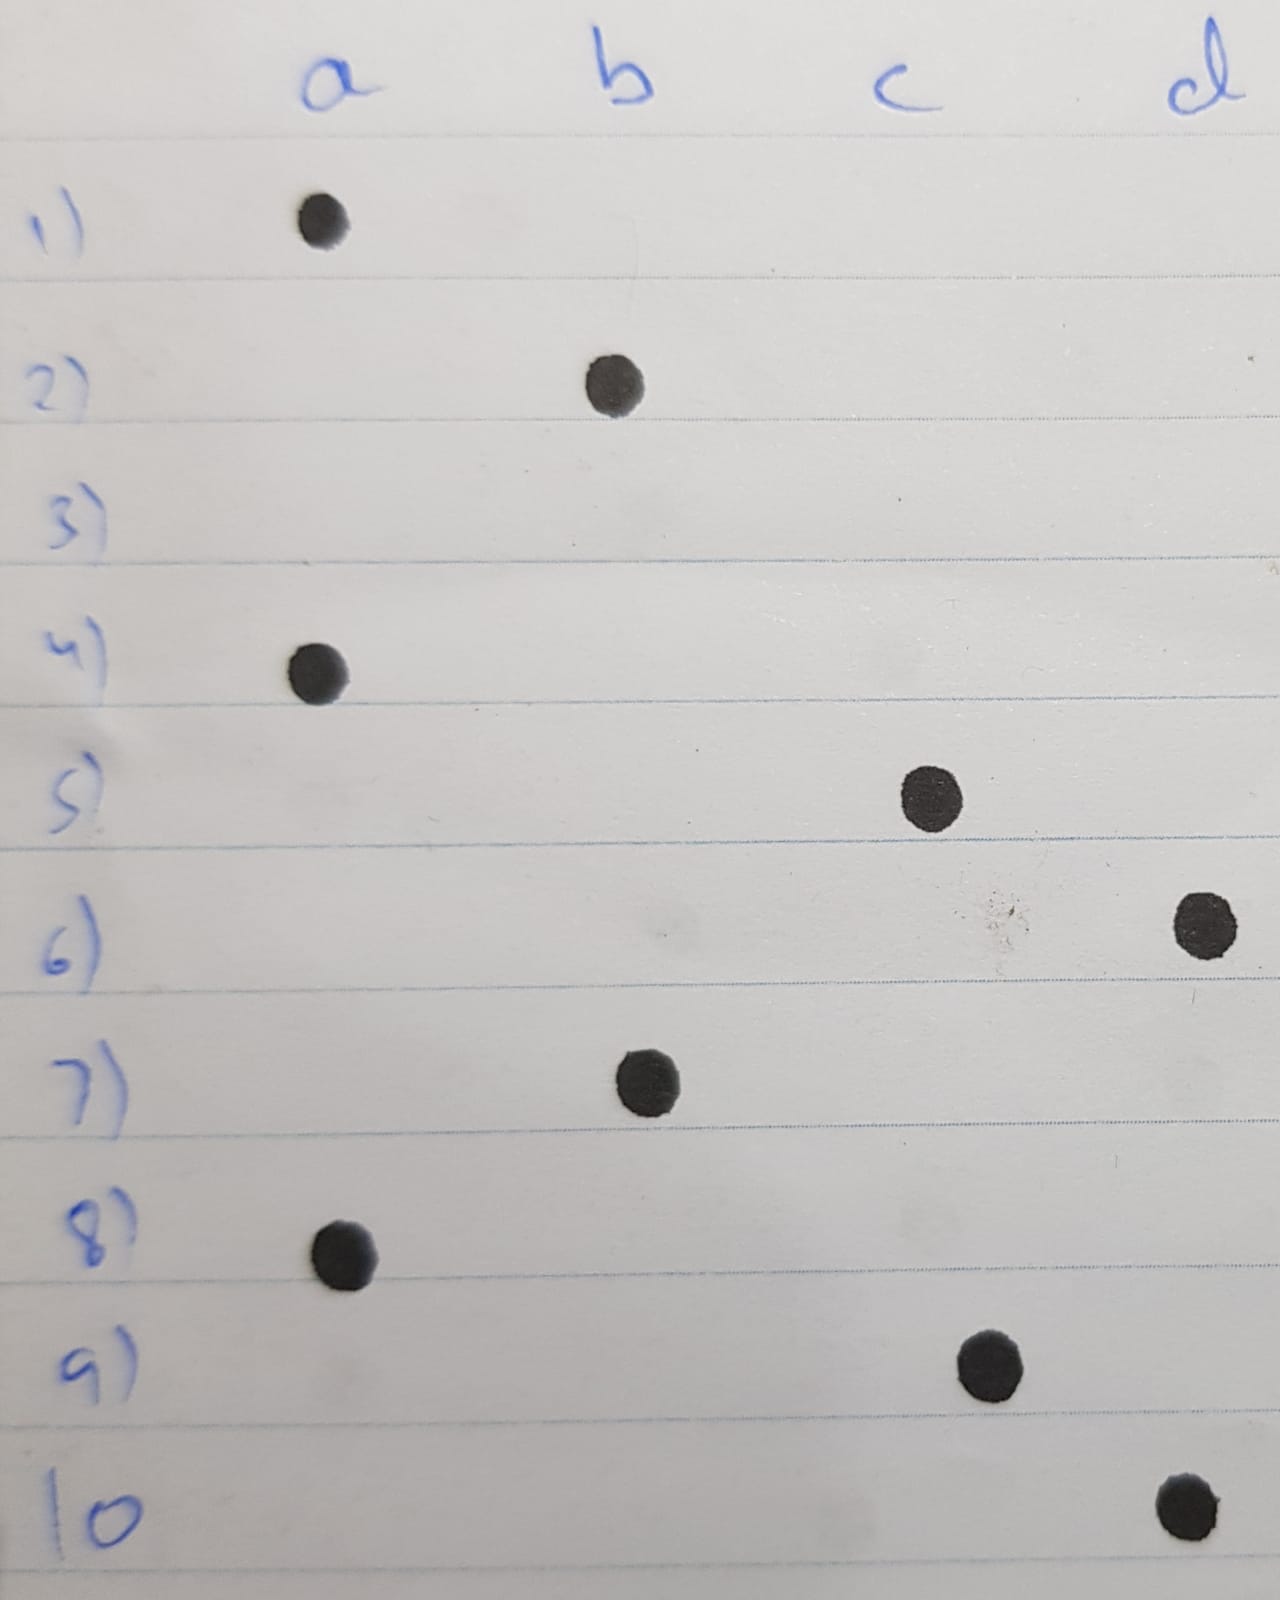 a b c d
1)
2)
3)
4)
5)
6)
7)
8)
9)
10